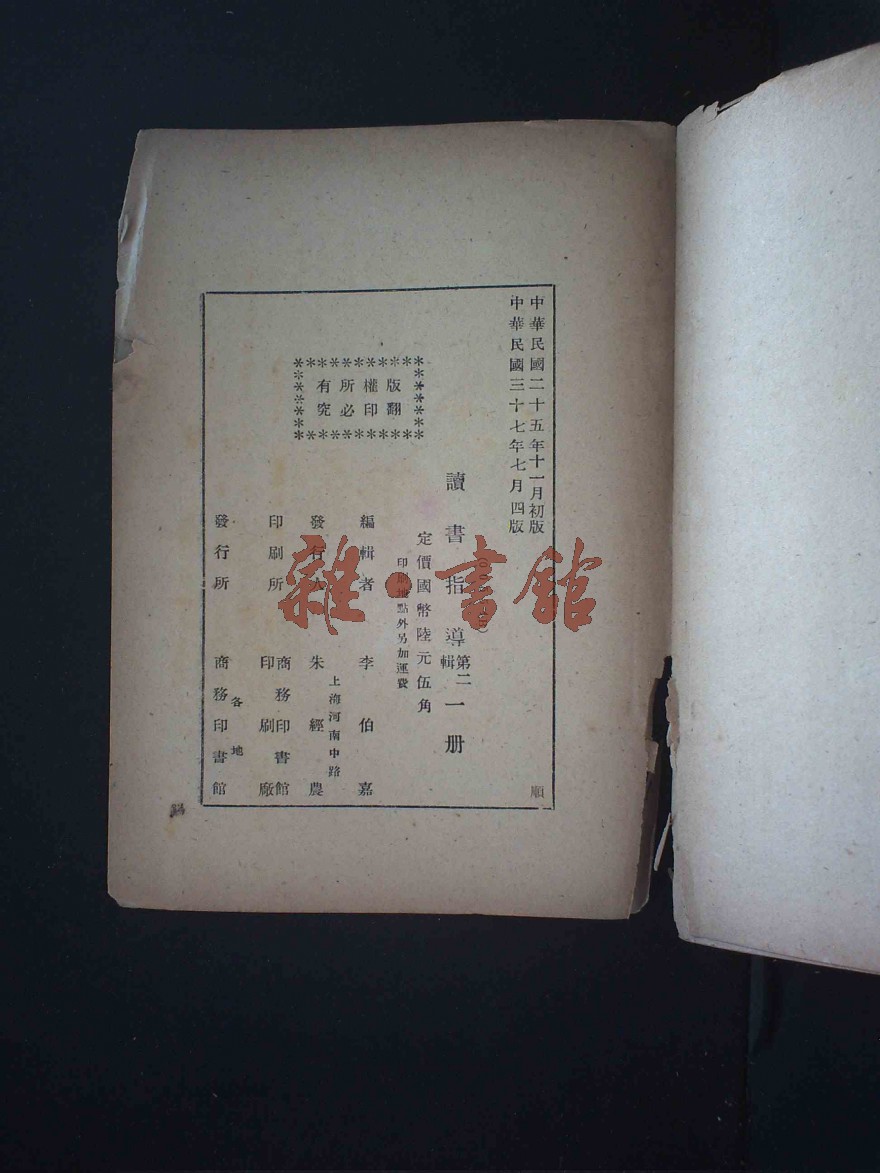 中華民國二十五年十一月初版
中華民國三十七年七月四版
順
版權所有
翻印必究
讀書指導第二輯一册
定價國幣陸元伍角
印刷地點外另加運費
編輯者 李伯嘉
上海河南中路
發行人 朱經農
印刷所 商務印書館印刷廠
各地
發行所 商務印書館
雜·書館